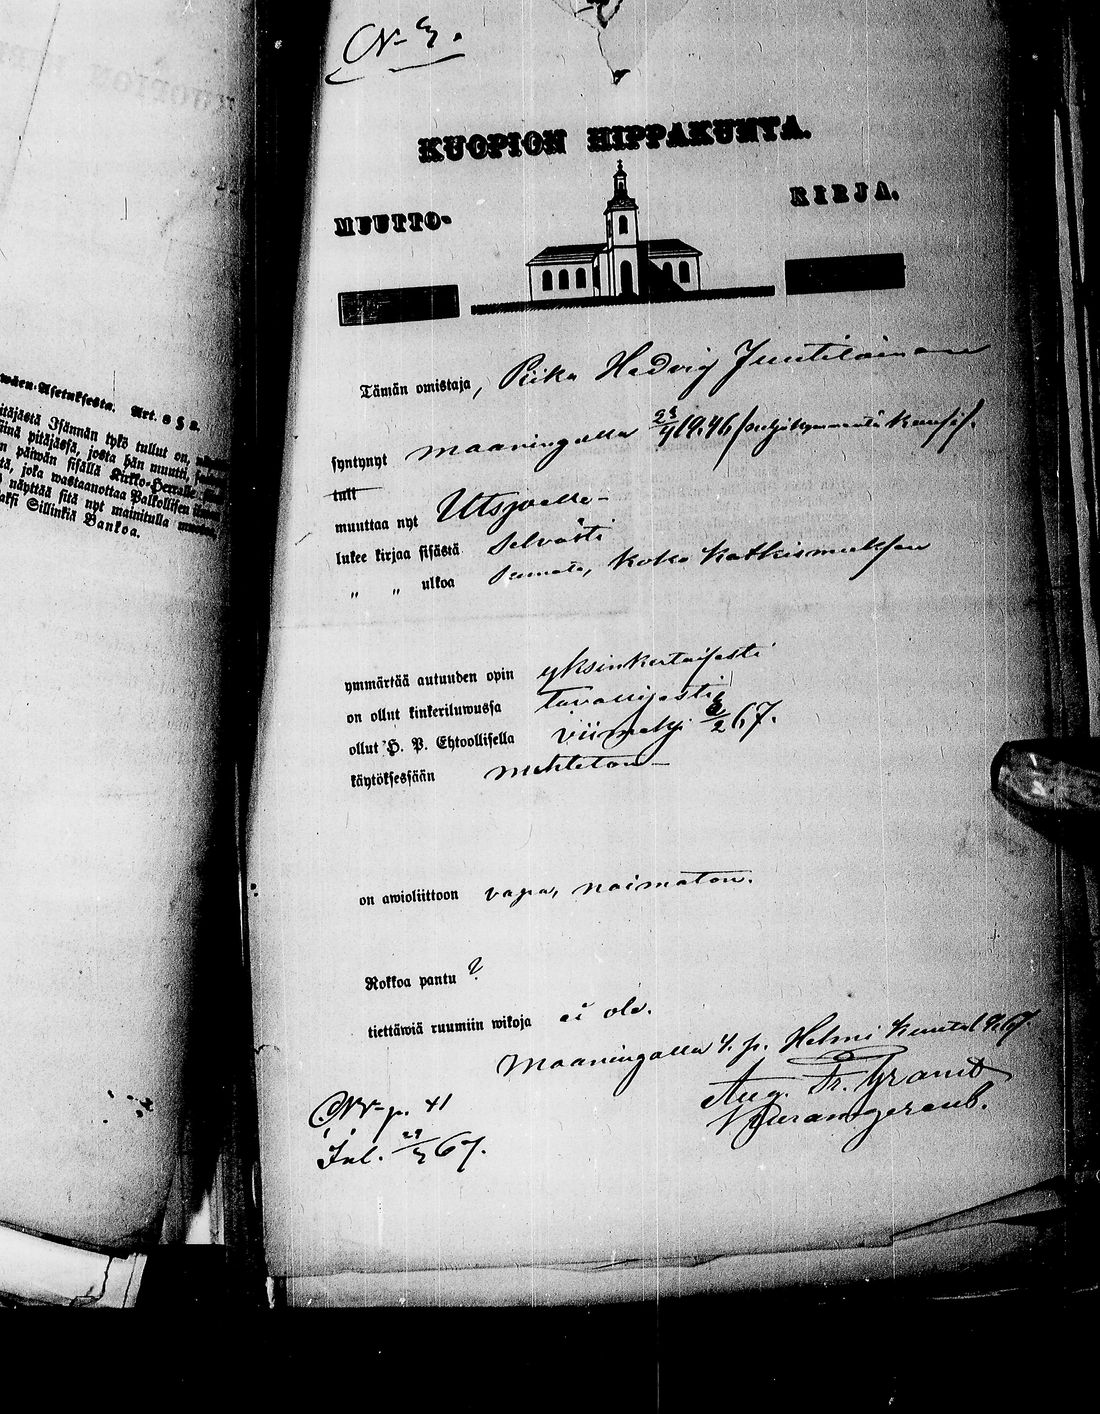 N 3.
KUOPION HIPPAKUNTA.
MUUTTO- KIRJA.
Tämän omistaja, Piika Hedvig Juutilainen
syntynyt Maaningalla 23/9 1846
tuli
muuttaa nyt Utsjoelle
lukee kirjaa sisästä Selvästi
„ „ ulkoa samate, koko katkismuksen
ymmärtää autuuden opin yksinkertaisesti
on ollut kinkeriluwussa tavallisesti
ollut H. P. Ehtoollisella viimeksi 3/2 67.
käytöksessään nuhteton
on awioliittoon vapa, naimaton.
Rokkoa pantu ?
tiettäwiä ruumiin wikoja ei ole.
Maaningalla 4. p. Helmi kuuta 1867.
Aug. Fr. Granit
p. 41
Inl. 29/3 67.
wäen-Asetuksesta. Art. 8 § 8.
pitäjästä Isännän tykö tullut on,
siinä pitäjässä, josta hän muutti,
n päiwän sisällä Kirkko-Herralle
tä, joka wastaanottaa Palkollisen
näyttää sitä nyt mainitulla
aksi Sillinkiä Bankoa.